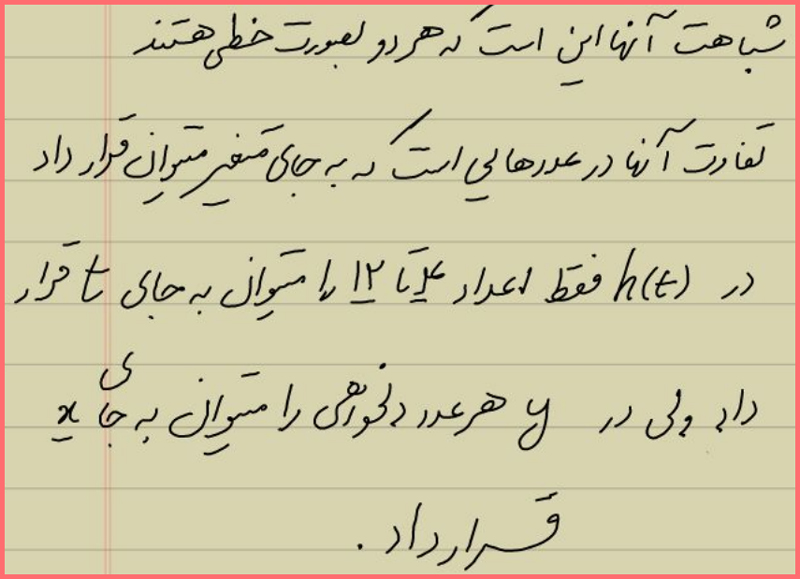 شباهت آنها این است که هر دو بصورت خطی هستند
تفاوت آنها در عددهایی است که به جای متغیر میتوان قرار داد
در h(t) فقط اعداد ۴ تا ۱۲ را میتوان به جای t قرار
داد ولی در y هر عدد دلخواهی را میتوان به جای x
قرار داد .